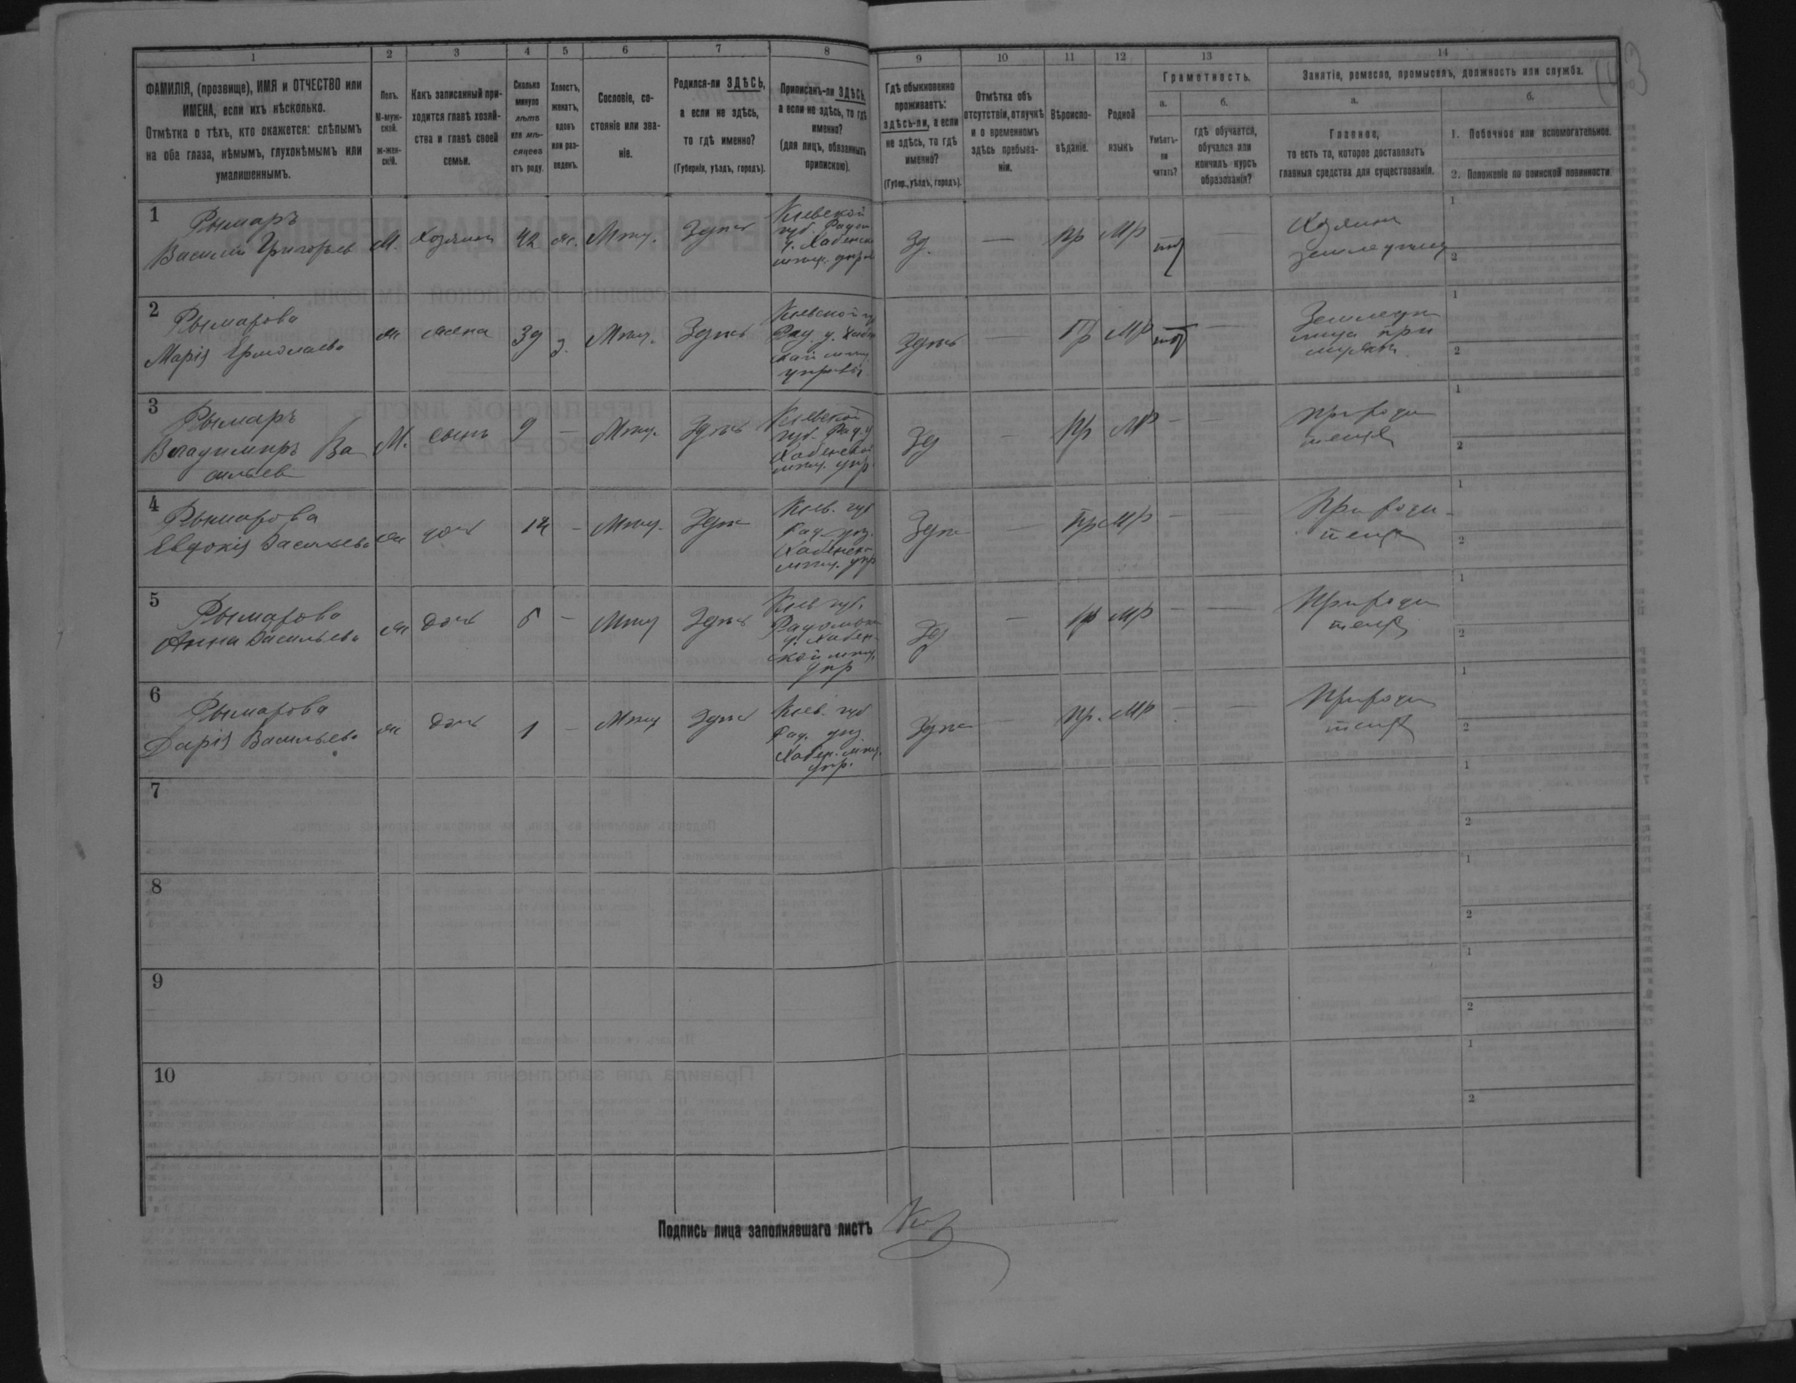 1 2 3 4 5 6 7 8 9 10 11 12 13 14
ФАМИЛІЯ, (прозвище), ИМЯ и ОТЧЕСТВО или
ИМЕНА, если ихъ нѣсколько.
Отмѣтка о тѣхъ, кто окажется: слѣпымъ
на оба глаза, нѣмымъ, глухонѣмымъ или
умалишеннымъ.
Полъ.
М-муж-
ской.
ж-жен-
скій.
Какъ записанный при-
ходится главѣ хозяй-
ства и главѣ своей
семьи.
Сколько
минуло
лѣтъ
или мѣ-
сяцевъ
отъ роду.
Холостъ,
женатъ,
вдовъ
или раз-
веденъ.
Сословіе, со-
стояніе или зва-
ніе.
Родился-ли ЗДѢСЬ,
а если не здѣсь,
то гдѣ именно?
(Губернія, уѣздъ, городъ).
Приписанъ-ли ЗДѢСЬ,
а если не здѣсь, то гдѣ
именно?
(для лицъ, обязанныхъ
припискою).
Гдѣ обыкновенно
проживаетъ:
здѣсь-ли, а если
не здѣсь, то гдѣ
именно?
(Губер., уѣздъ, городъ).
Отмѣтка объ
отсутствіи, отлучкѣ
и о временномъ
здѣсь пребыва-
ніи.
Вѣроиспо-
вѣданіе.
Родной
языкъ
Грамотность.
а.
Умѣетъ-
ли
читать?
б.
гдѣ обучается,
обучался или
кончилъ курсъ
образованія?
Занятіе, ремесло, промыселъ, должность или служба.
а.
Главное,
то есть то, которое доставляетъ
главныя средства для существованія.
б.
1. Побочное или вспомогательное.
2. Положеніе по воинской повинности.
1
Рымаръ
Василій Григорьев М. Хозяинъ 42 ж. Мѣщ. Здѣсь
Кіевской
губ. Радом
у. Хабенск
мѣщ. управ
Зд. — Пр МР —
Хозяинъ
1
2
2
Рымарова
Марія Ермолаева ж жена 39 з. Мѣщ. Здѣсь
Кіевской г
Рад. у. Хабен
ской мѣщ
управы
Здѣсь — Пр МР —
1
2
3
Рымаръ
Владимиръ Ва
сильев М. сынъ 9 — Мѣщ. Здѣсь
Кіевской
губ. Рад. у
Хабенской
мѣщ. упр
Зд — Пр МР — При роди
теляхъ
1
2
4
Рымарова
Евдокія Васильева ж дочь 14 — Мѣщ. Здѣсь
Кіев. губ
Рад. уѣз.
Хабенск
мѣщ. упр
Здѣсь — Пр МР — — При роди-
теляхъ
1
2
5
Рымарова
Анна Васильева ж дочь 5 — Мѣщ Здѣсь
Кіев губ.
Радомысл
у. Хабен
ской мѣщ.
упр
Зд — Пр МР — — При роди
теляхъ
1
2
6
Рымарова
Дарія Васильева ж дочь 1 — Мѣщ Здѣсь
Кіев. губ
Рад. уѣз
Хабен. мѣщ.
упр.
Здѣсь — Пр. МР — — При роди
теляхъ
1
2
7
1
2
8
1
2
9
1
2
10
1
2
Подпись лица заполнявшаго листъ